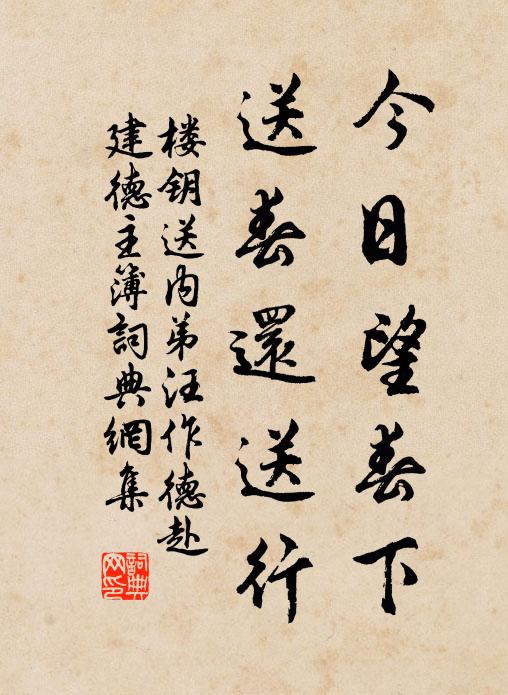 今日望春下
送春還送行
楼钥送内弟汪作德赴
建德主簿詞典網集
詞典
网印